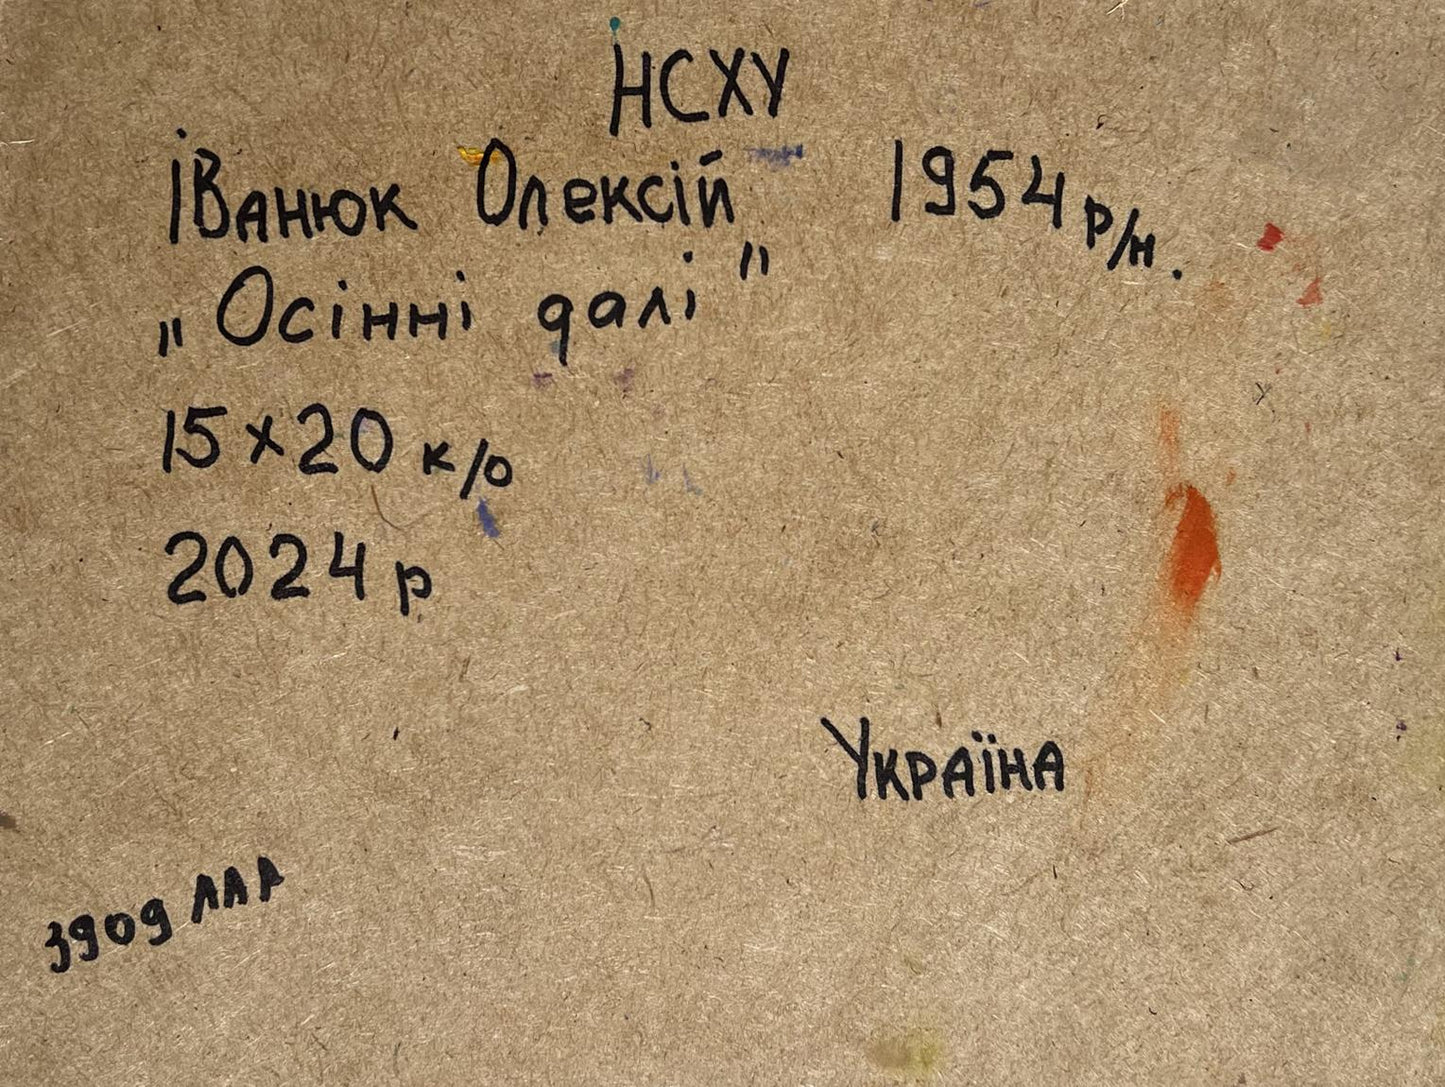 НСХУ
Іванюк Олексій 1954 р/н.
„Осінні далі"
15х20 к/о
2024 р
Україна
3909 ААА